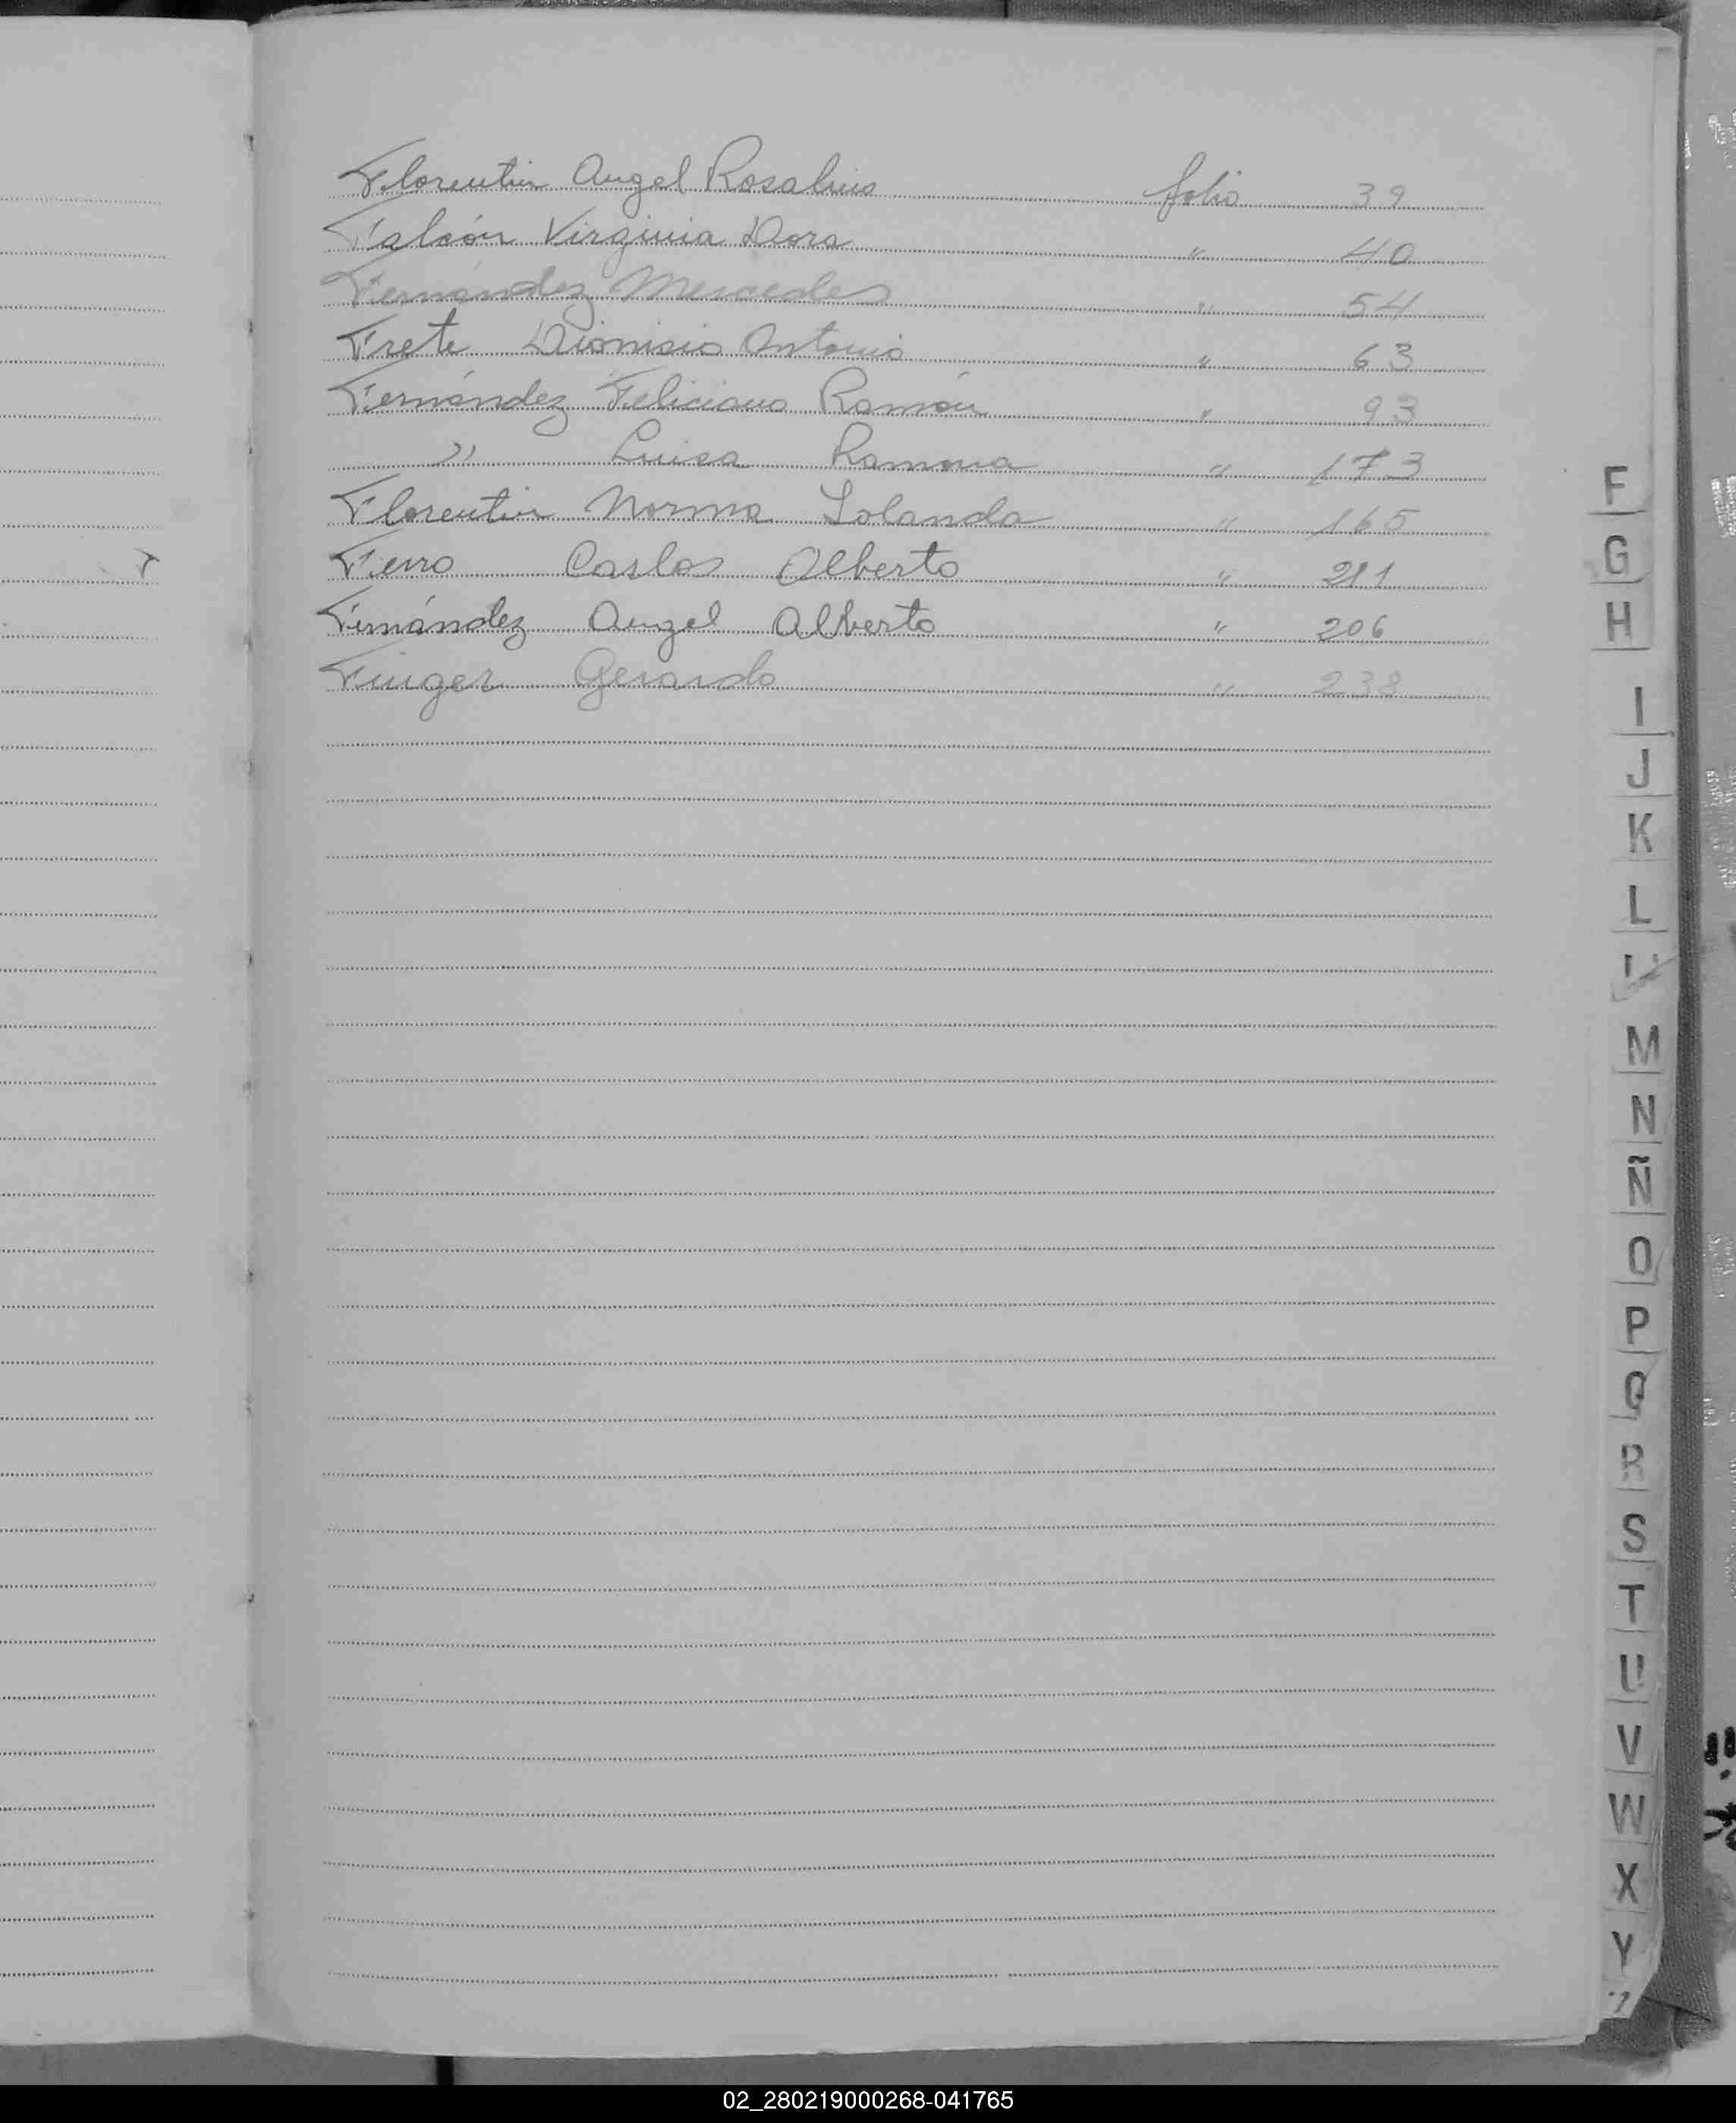 Florentin Angel Rosalino folio 39
Falcón Virginia Dora " 40
Fernández Mercedes " 54
Frete Dionisio Antonio " 63
Fernández Feliciano Ramón " 93
" Luisa Ramona " 173
Florentin Norma Iolanda " 165
Fierro Carlos Alberto " 211
Fernández Angel Alberto " 206
Finger Gerardo " 238
F
G
H
I
J
K
L
M
N
Ñ
O
P
Q
R
S
T
U
V
W
X
Y
02_280219000268-041765